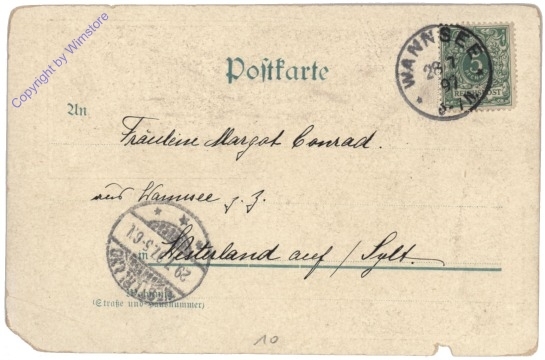 Copyright by Wimstore
Postkarte
WANNSEE
28 7
97
5-7N
5
REICHSPOST
An
Fräulein Margot Conrad.
aus Wannsee z. Z.
in Westerland auf / Sylt.
29
7
5-6N
WESTERLAND
(Straße und Hausnummer)
10